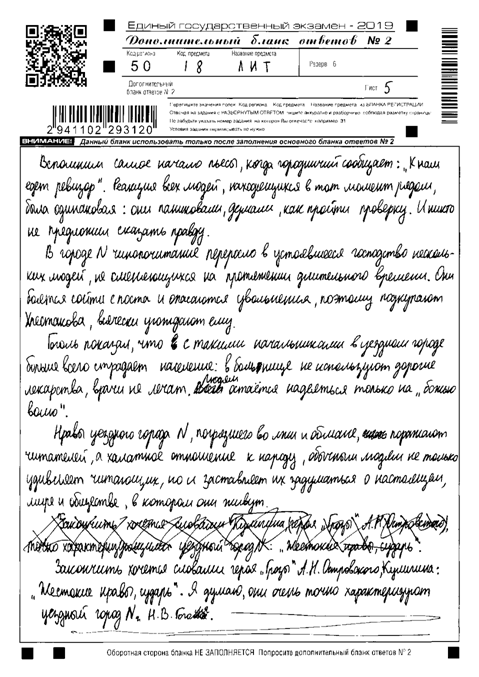 Единый государственный экзамен - 2019
Дополнительный бланк ответов № 2
Код региона Код предмета Название предмета
50 18 ЛИТ
Резерв 6
Дополнительный бланк ответов № 2
Лист 5
2941102293120
ВНИМАНИЕ! Данный бланк использовать только после заполнения основного бланка ответов № 2
Вспомним самое начало пьесы, когда городничий сообщает: „К нам
едет ревизор". Реакция всех людей, находящихся в тот момент рядом,
была одинаковая: они паниковали, думали, как пройти проверку. И никто
не предложил сказать правду.
В городе N чинопочитание переросло в устоявшееся господство несколь-
ких людей, не сменяющихся на протяжении длительного времени. Они
боятся сойти с поста и опасаются увольнения, поэтому подкупают
Хлестакова, всячески угождают ему.
Гоголь показал, что с такими начальниками в уездном городе
больше всего страдает население: в больнице не используют дорогие
лекарства, врачи не лечат. Людям остаётся надеяться только на „божью
волю".
Нравы уездного города N, погрязшего во лжи и обмане, поражают
читателей, а халатное отношение к народу, обычным людям не только
удивляет читающих, но и заставляет их задуматься о настоящем,
мире и обществе, в котором они живут.
Закончить хочется словами Кулигина (героя „Грозы" А.Н. Островского),
точно характеризующими уездный город N: „Жестокие нравы, сударь".
Закончить хочется словами героя „Грозы" А.Н. Островского, Кулигина:
„Жестокие нравы, сударь". Я думаю, они очень точно характеризуют
уездный город N. Н.В. Гоголя.
Оборотная сторона бланка НЕ ЗАПОЛНЯЕТСЯ. Попросите дополнительный бланк ответов № 2